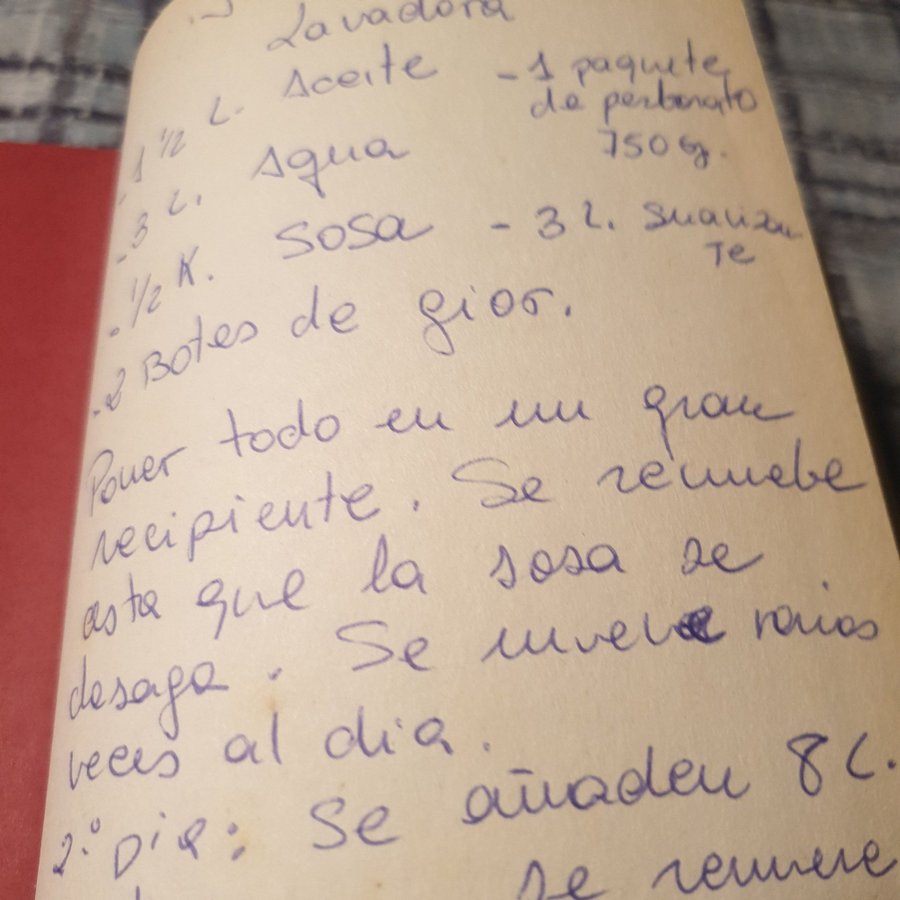 Lavadora
- 1 ½ L. Aceite
- 1 paquete
de perborato
750 g.
- 3 L. Agua
- ½ K. Sosa
- 3 L. Suavizan
Te
- 2 Botes de gior.
Poner todo en un gran
recipiente. Se remuebe
asta que la sosa se
desaga. Se mueve varias
veces al dia.
2º Dia: Se añaden 8 L.
se remueve